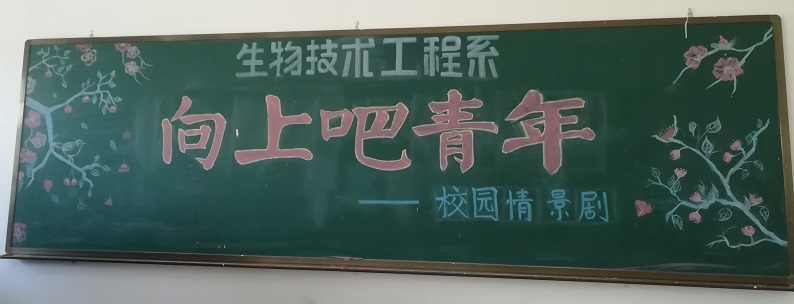 生物技术工程系
向上吧青年
——校园情景剧